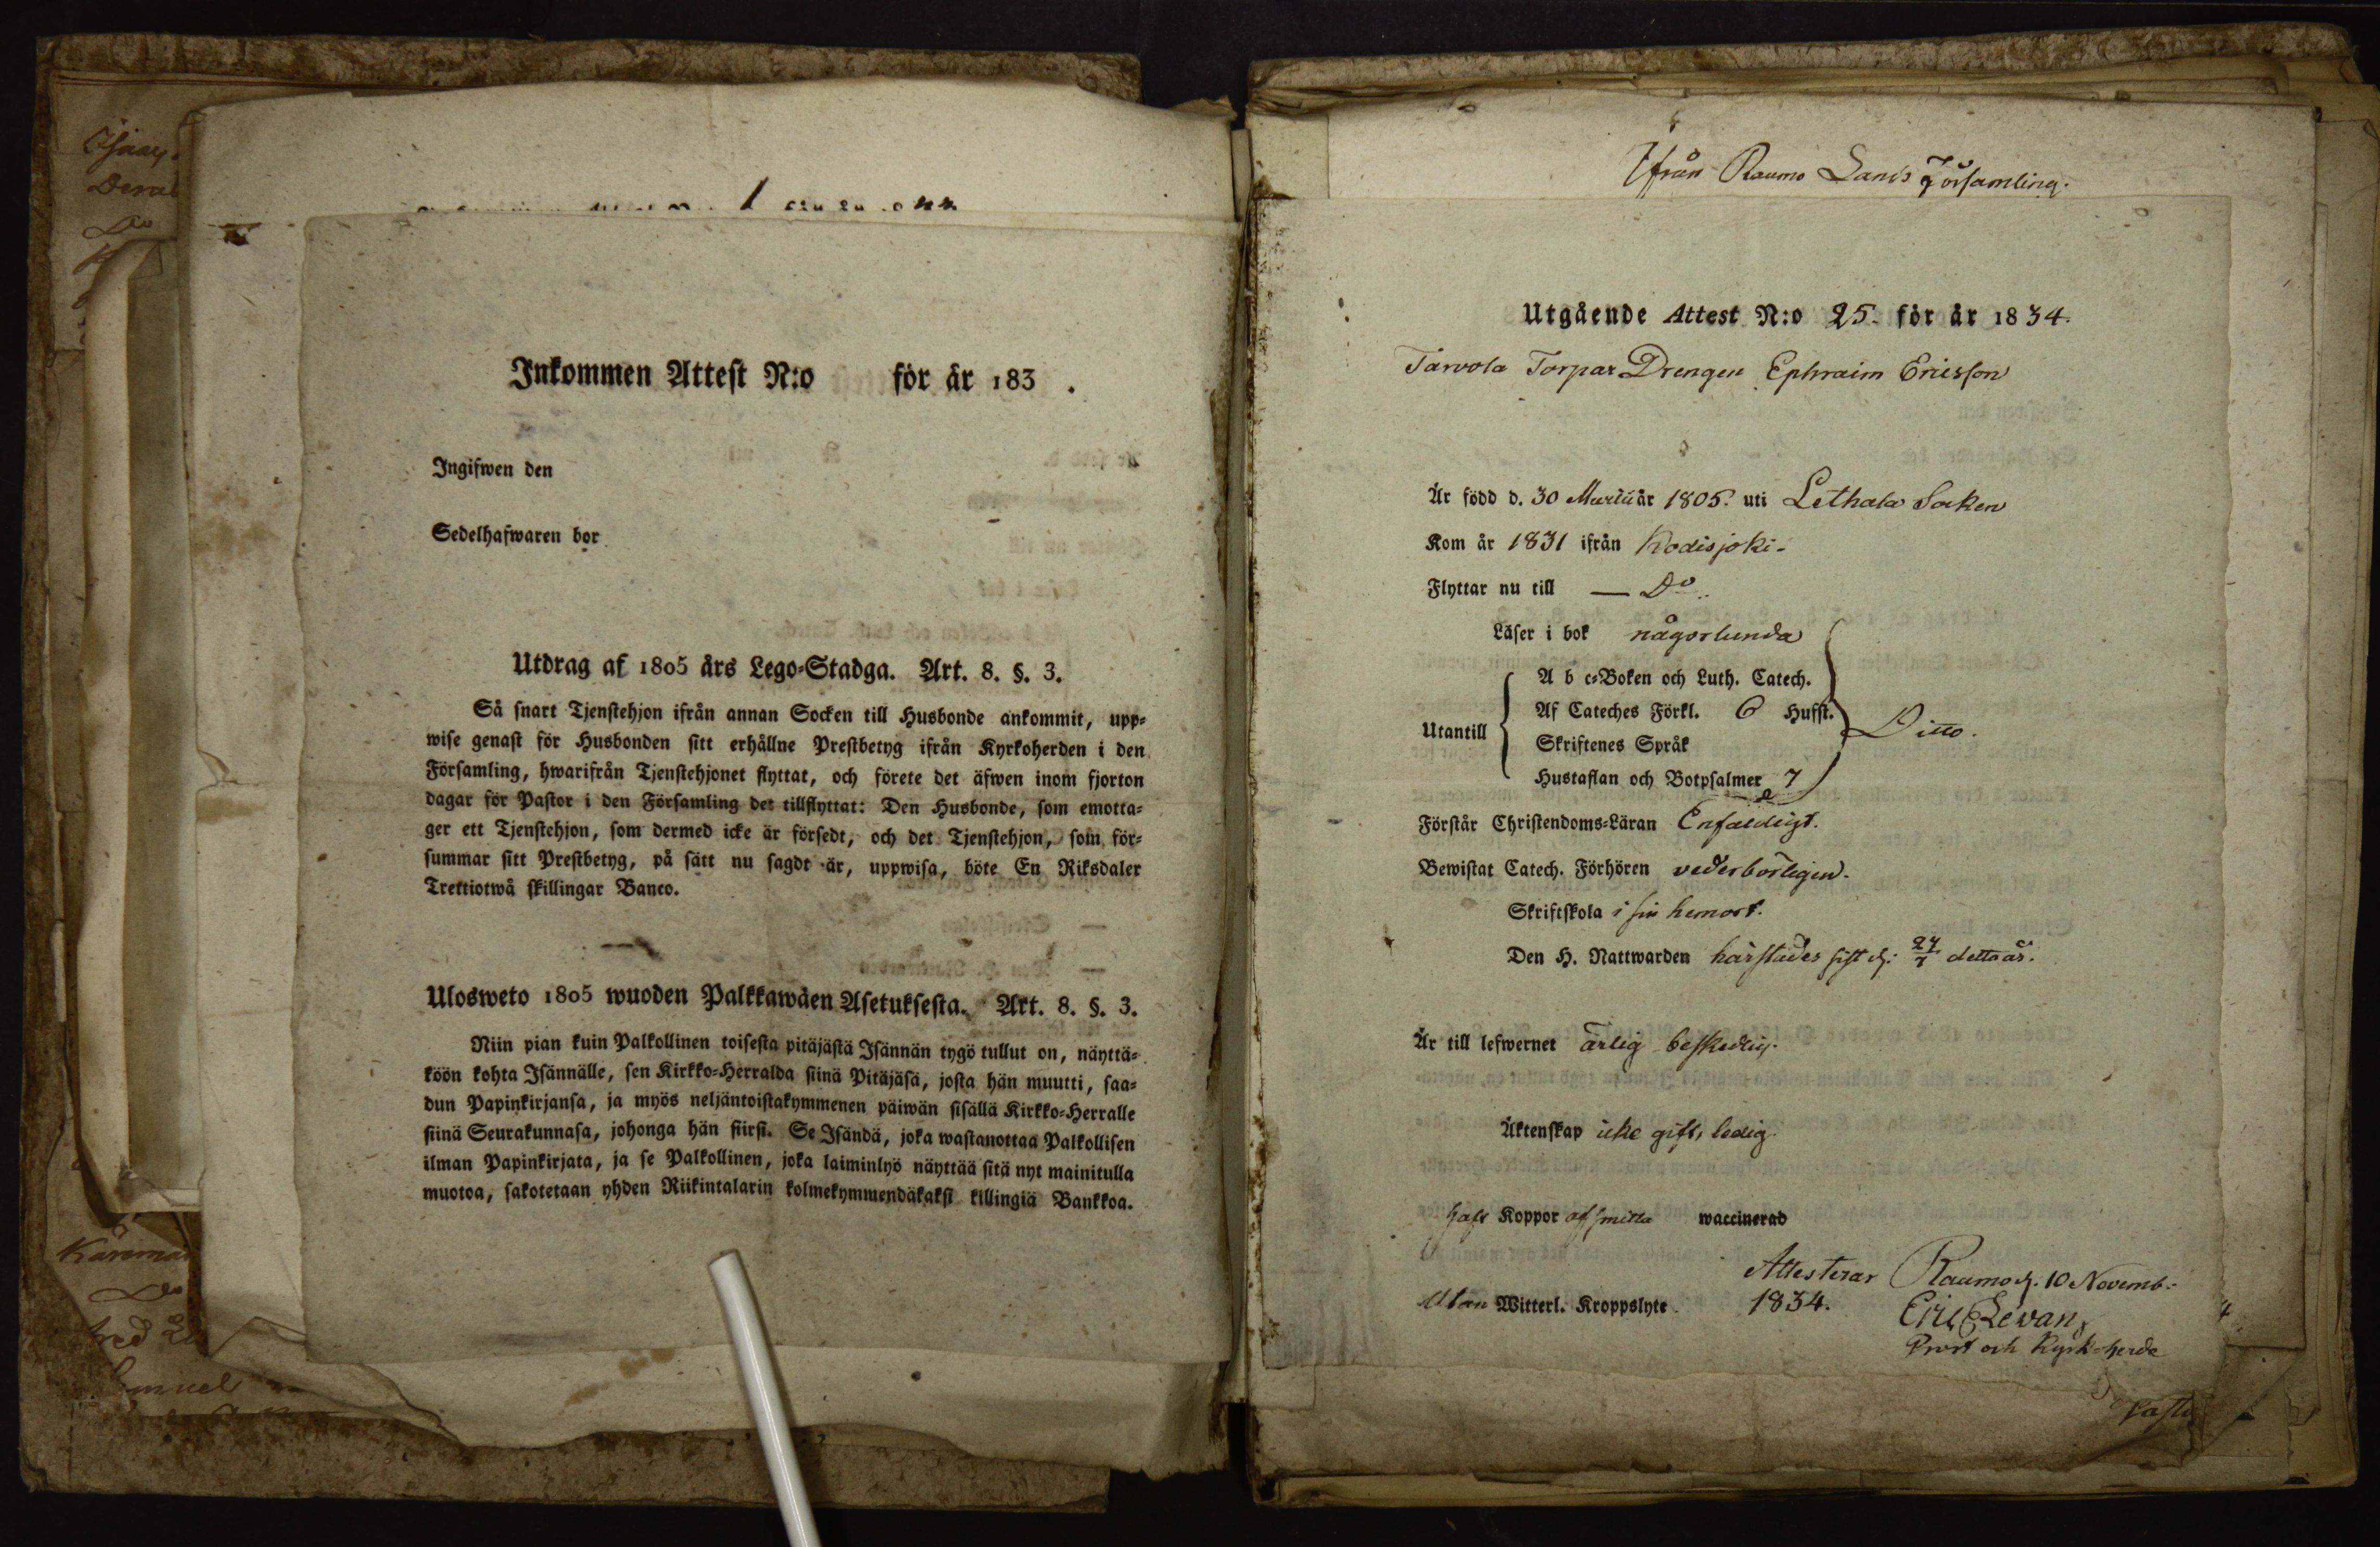 Inkommen Attest N:o för år 183 .
Ingifwen den
Sedelhafwaren bor
Utdrag af 1805 års Lego-Stadga. Art. 8. §. 3.
Så snart Tjenstehjon ifrån annan Socken till Husbonde ankommit, upp-
wise genast för Husbonden sitt erhållne Prestbetyg ifrån Kyrkoherden i den
Församling, hwarifrån Tjenstehjonet flyttat, och förete det äfwen inom fjorton
dagar för Pastor i den Församling det tillflyttat: Den Husbonde, som emotta-
ger ett Tjenstehjon, som dermed icke är försedt, och det Tjenstehjon, som för-
summar sitt Prestbetyg, på sätt nu sagdt är, uppwisa, böte En Riksdaler
Trettiotwå skillingar Banco.
Ulosweto 1805 wuoden Palkkawäen Asetuksesta. Art. 8. §. 3.
Niin pian kuin Palkollinen toisesta pitäjästä Isännän tygö tullut on, näyttä-
köön kohta Isännälle, sen Kirkko-Herralda siinä Pitäjäsä, josta hän muutti, saa-
dun Papinkirjansa, ja myös neljäntoistakymmenen päiwän sisällä Kirkko-Herralle
siinä Seurakunnasa, johonga hän siirsi. Se Isändä, joka wastanottaa Palkollisen
ilman Papinkirjata, ja se Palkollinen, joka laiminlyö näyttää sitä nyt mainitulla
muotoa, sakotetaan yhden Riikintalarin kolmekymmendäkaksi killingiä Bankkoa.
Ifrån Raumo Lands Församling.
Utgående Attest N:o 25. för år 1834.
Tarvola Torpar Drengen Ephraim Ericsson
Är född d. 30 Martii år 1805. uti Lethala Socken
Kom år 1831 ifrån Kodisjoki.
Flyttar nu till — Do.
Läser i bok någorlunda
A b c-Boken och Luth. Catech.
Af Cateches Förkl. 6 Hufst.
Utantill Ditto.
Skriftenes Språk
Hustaflan och Botpsalmer 7
Förstår Christendoms-Läran Enfaldigt.
Bewistat Catech. Förhören vederbörligen.
Skriftskola i sin hemort.
Den H. Nattwarden härstädes sist d. detta år.
Är till lefwernet ärlig beskedlig.
Äktenskap icke gift, ledig.
Haft Koppor af smitta waccinerad
Attesterar Raumo d. 10 Novemb.
Utan Witterl. Kroppslyte. 1834.
Eric Levan,
Prost och Kyrkoherde